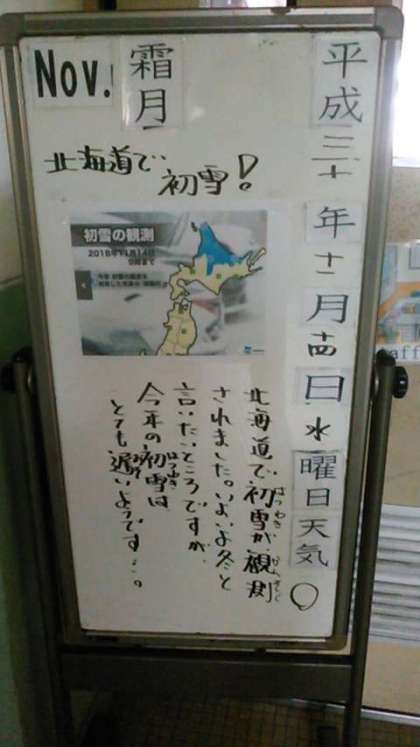 平成三十年十一月十四日水曜日天気○
霜月
Nov.
北海道で、初雪!
初雪の観測
2018年11月14日
9時まで
北海道で初雪が観測
されました。いよいよ冬と
言いたいところですが、
今年の初雪は
とても遅いようです…。